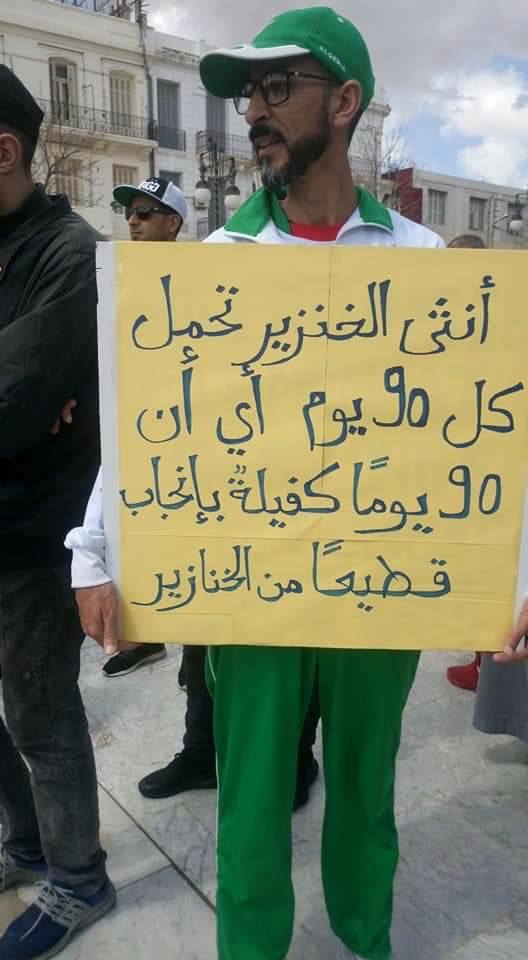 ALGERIA
أنثى الخنزير تحمل
كل 90 يوم أي أن
90 يومًا كفيلةٌ بإنجاب
قطيعًا من الخنازير